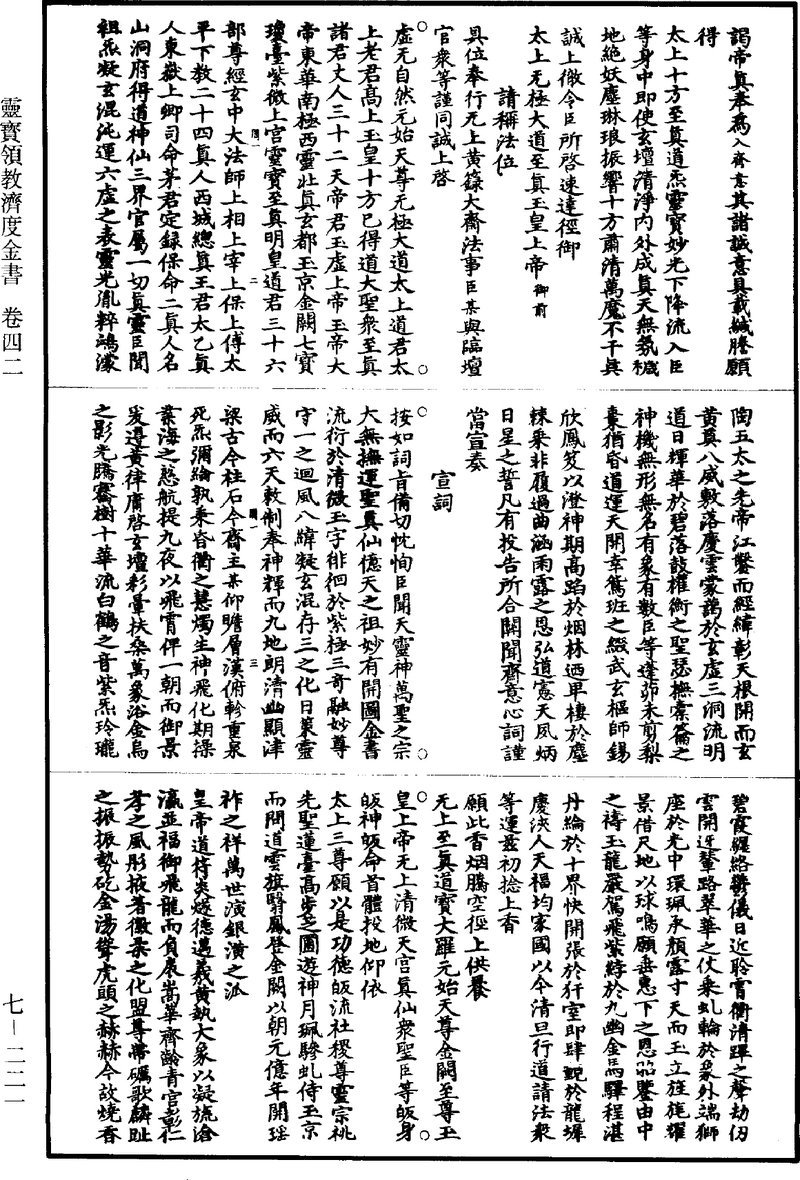 靈寶領教濟度金書 卷四二
七－二二一
謁帝真奉為入齋意某諸誠意具載緘謄願
得
太上十方至真道炁靈寶妙光下降流入臣
等身中即使玄壇清淨內外成真天無氛穢
地絕妖塵琳琅振響十方肅清萬魔不干具
誠上徹令臣所啓速達徑御
太上无極大道至真玉皇上帝御前
請稱法位
具位奉行无上黃籙大齋法事臣某與臨壇
官衆等謹同誠上啓
虛无自然元始天尊无極大道太上道君太
上老君高上玉皇十方已得道大聖衆至真
諸君丈人三十二天帝君玉虛上帝玉帝大
帝東華南極西靈壯真玄都玉京金闕七寶
瓊臺紫微上宮靈寶至真明皇道君三十六
部尊經玄中大法師上相上宰上保上傅太
平下教二十四真人西城總真王君太乙真
人東嶽上卿司命茅君定錄保命二真人名
山洞府得道神仙三界官屬一切真靈臣聞
祖炁凝玄混沌運六虛之表靈光胤粹鴻濛
陶五太之先帝江鑿而經緯彰天根開而玄
黃奠八威敷落慶雲蒙藹於玄虛三洞流明
道日輝華於碧落鼓權衡之聖瑟撫橐籥之
神機無形無名有象有數臣等逢茆未剪梨
棗猶昏道運天開幸篤班之綴武玄樞師錫
欣鳳笈以澄神期高蹈於烟林迺卑棲於塵
棘乘非履過曲涵雨露之恩弘道憲天夙炳
日星之誓凡有投告所合關聞齋意心詞謹
當宣奏
宣詞
按如詞旨備切忱恂臣聞天靈神萬聖之宗
大無撫運聖真仙億天之祖妙有開圖金書
流衍於清微玉字徘徊於紫極三奇融妙尊
守一之迴風八緯凝玄混存三之化日策靈
威而六天敕制奉神輝而九地朗清幽顯津
梁古今柱石今齋主某仰瞻層漢俯軫重泉
死炁彌綸孰秉昏衢之慧燭生神飛化期操
業海之慈航提九夜以飛霄俾一朝而御景
爰遵黃律庸啓玄壇彩暈扶桑萬象浴金烏
之影光騰騫樹十華流白鶴之音紫炁玲瓏
碧霞纏絡鬱儀日近聆霄衢清蹕之聲劫仞
雲開迓輦路翠華之仗乘虬輪於象外端獅
座於光中環珮承顏露寸天而玉立旌旄耀
景借尺地以球鳴願垂惠下之恩㬎鑒由中
之禱玉龍嚴駕飛紫綍於九幽金馬驛程湛
丹綸於十界快開張於犴室即肆覲於龍墀
慶浹人天福均家國以今清旦行道請法衆
等運茲初捻上香
願此香烟騰空徑上供養
无上至真道寶大羅元始天尊金闕至尊玉
皇上帝无上清微天宮真仙衆聖臣等皈身
皈神皈命首體投地仰依
太上三尊願以是功德皈流社稷尊靈宗祧
先聖蓮臺高步芝圃遊神月珮驂虬侍玉京
而問道雲旗翳鳳登金闕以朝元億年開瑤
祚之祥萬世演銀潢之派
皇帝道符炎燧德邁羲黃執大象以凝旒滄
瀛並福御飛龍而負扆嵩華齊齡青宮彰仁
孝之風彤掖著徽柔之化盟尊帶礪歌麟趾
之振振勢矻金湯聲虎頭之赫赫今故燒香